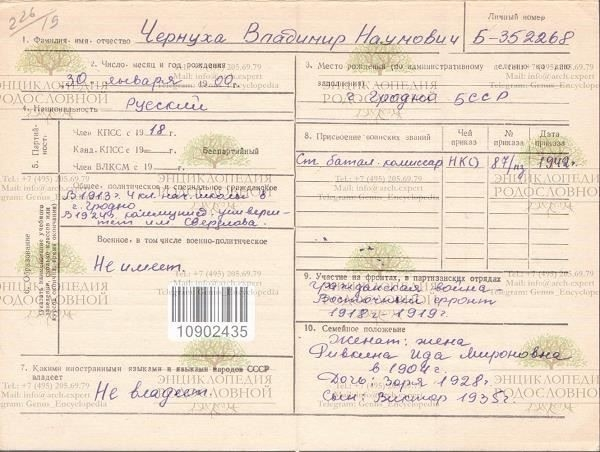 226
19
Личный номер
1. Фамилия, имя, отчество Чернуха Владимир Наумович
Б-352268
2. Число, месяц и год рождения
30. января 1900 г.
3. Место рождения (по административному делению ко дню
заполнения)
г. Гродно БССР
4. Национальность русский
5. Партийность
Член КПСС с 1918 г.
Канд. КПСС с 19 г.
Беспартийный
Член ВЛКСМ с 19 г.
6. Образование
Общее, политическое и специальное гражданское
В 1913г. 4 кл. нач. школы в
г. Гродно
В 1924г. коммунист. универси-
тет им. Свердлова.
Военное, в том числе военно-политическое
Не имеет.
10902435
7. Какими иностранными языками и языками народов СССР
владеет
Не владеет.
8. Присвоение воинских званий
Чей приказ
№ приказа
Дата приказа
Ст. батал. комиссар
НКО
87/пд
1942г.
9. Участие на фронтах, в партизанских отрядах
Гражданская война -
Восточный фронт
1918 - 1919г.
10. Семейное положение
Женат: жена
Ривкина Ида Мироновна
в 1904г.
Дочь: Заря 1928г
Сын: Виктор 1935г.
ЭНЦИКЛОПЕДИЯ
РОДОСЛОВНОЙ
Tel.: +7 (495) 205.69.79
Mail: info@arch.expert
Telegram: Genus_Encyclopedia